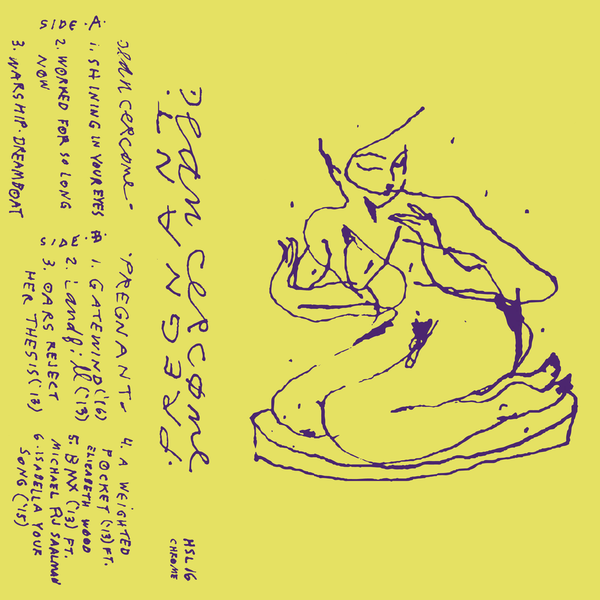 Dean cercone
PREGNANT
HSL 16
CHROME
Dean cercone-
SIDE·A·
1. SHINING IN YOUR EYES
2. WORKED FOR SO LONG
NOW
3. WARSHIP·DREAMBOAT
·PREGNANT-
SIDE B
1. GATEWIND ('16)
2. Landfill ('13)
3. OARS REJECT
HER THESIS ('13)
4. A WEIGHTED
POCKET ('13) FT.
ELIZABETH WOOD
5. BMX ('13) FT.
MICHAEL RJ SAALMAN
6. ISABELLA YOUR
SONG ('15)